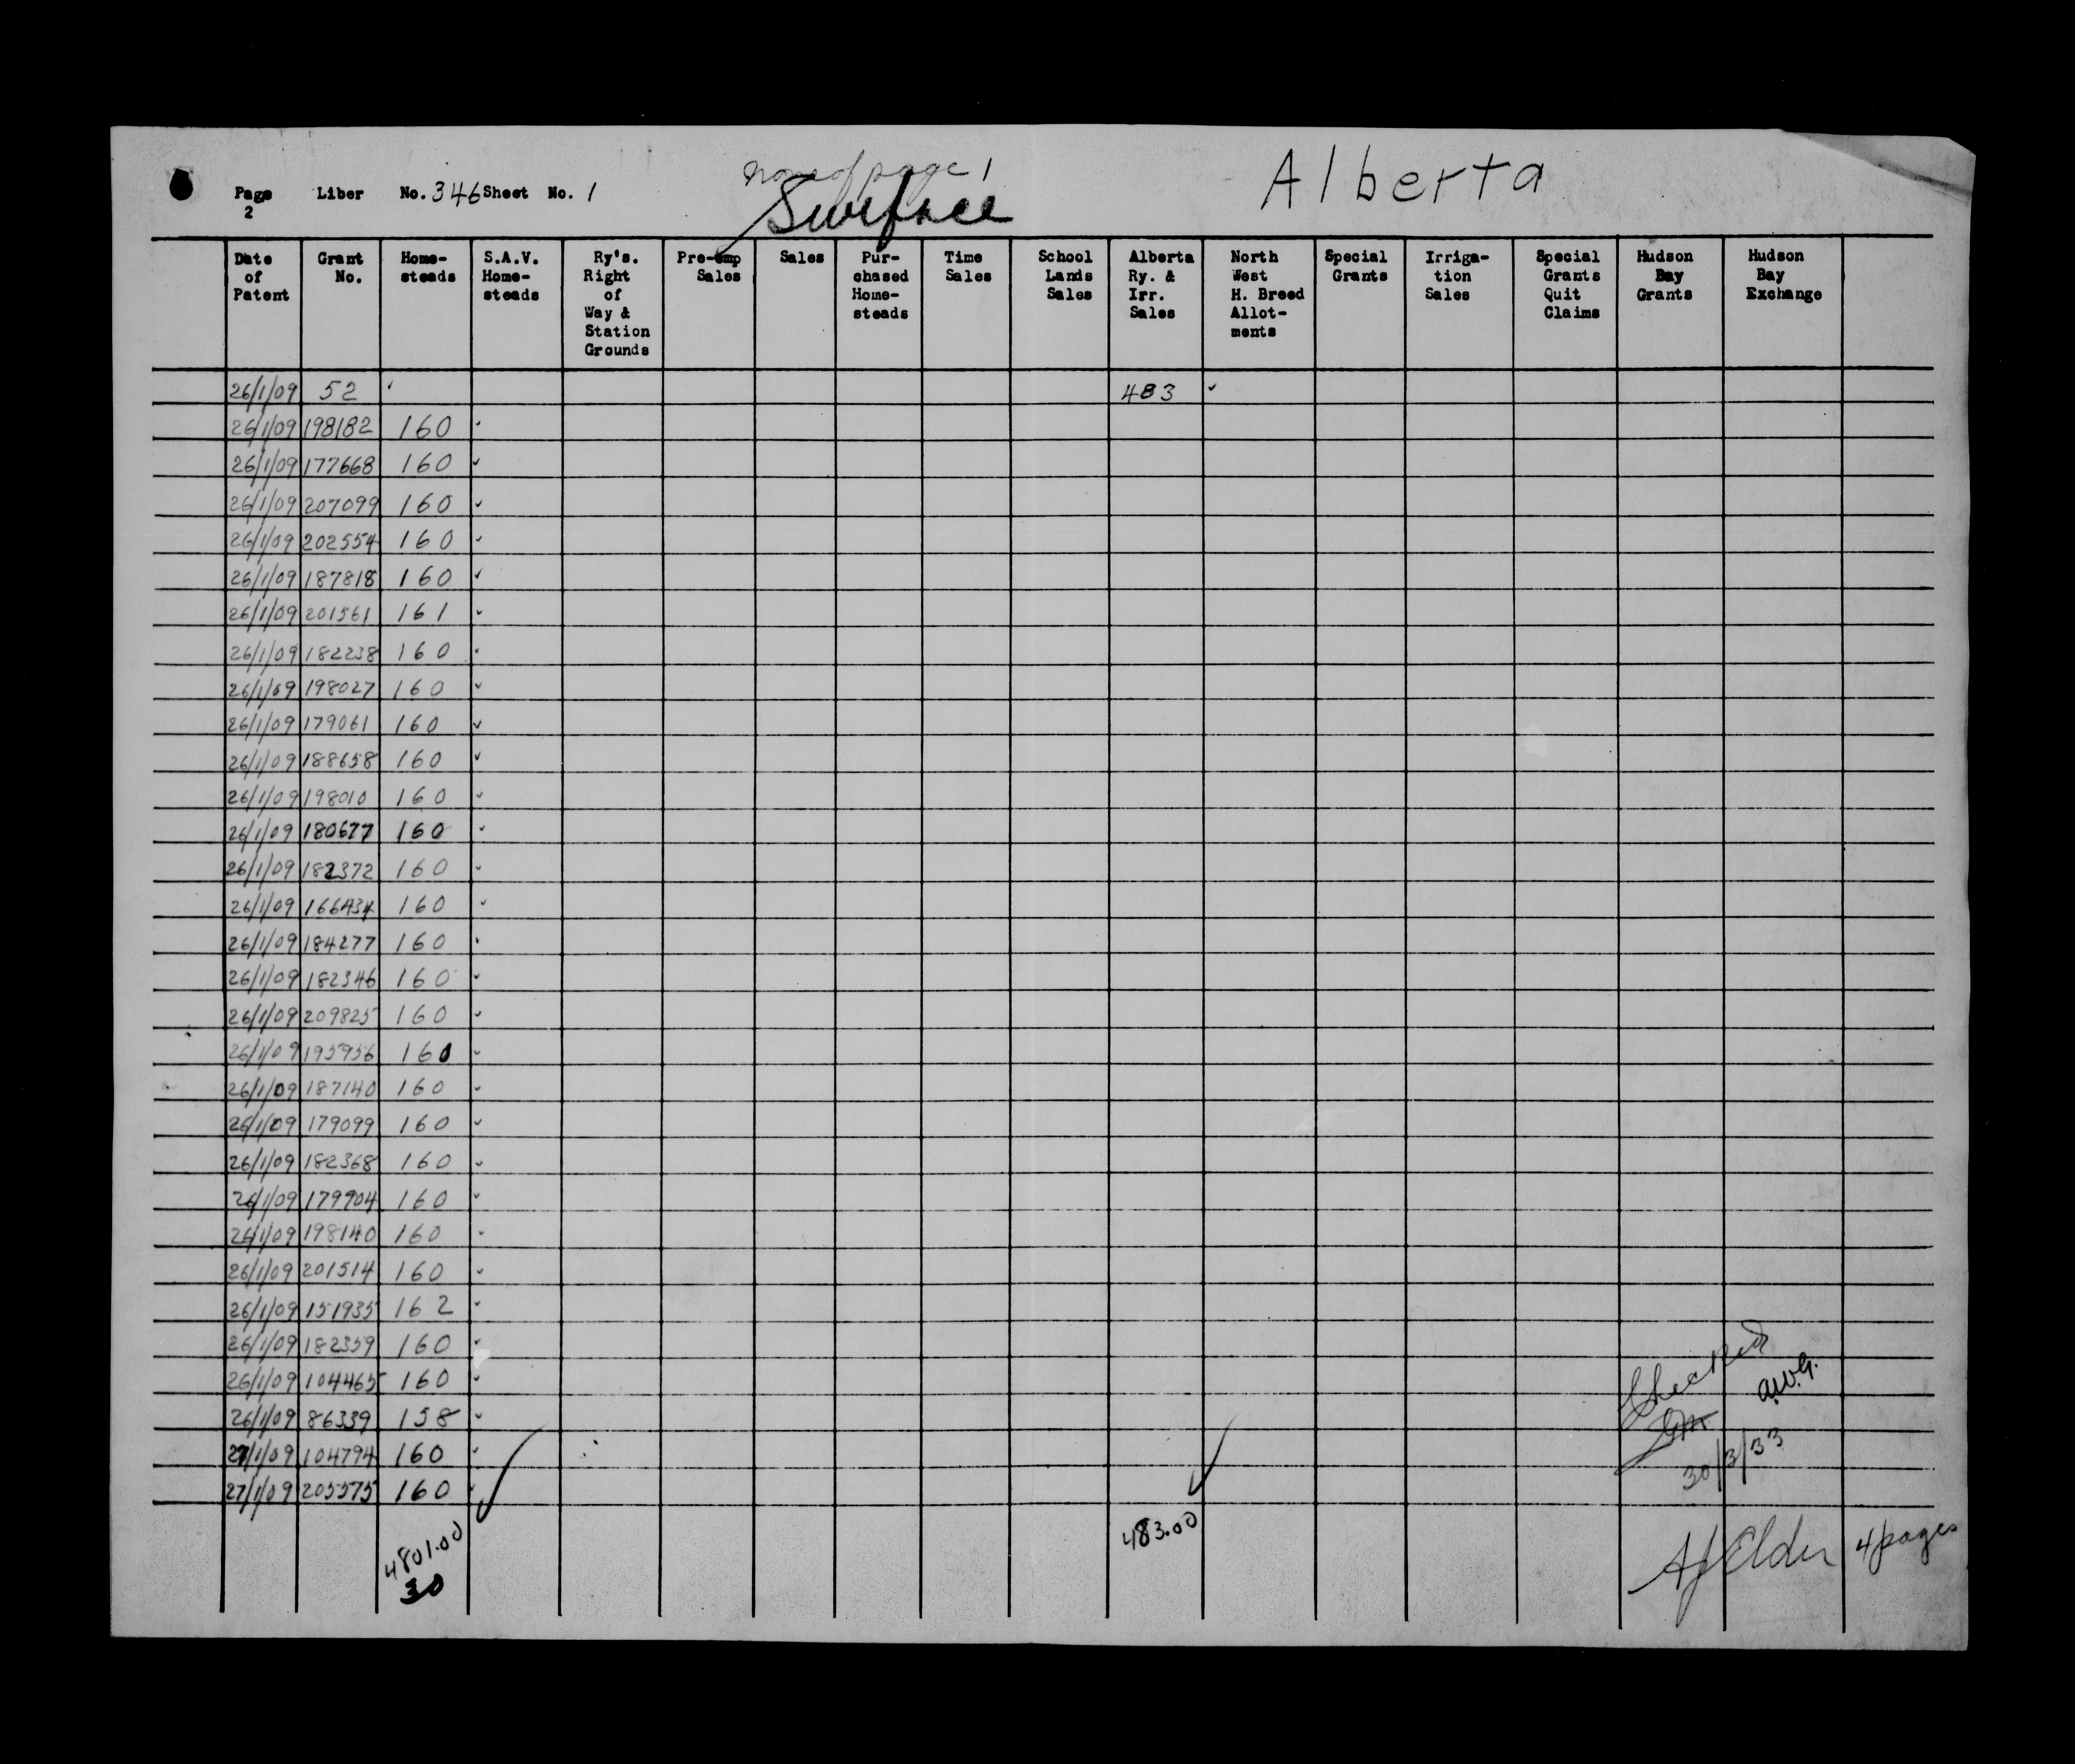 no. of page 1
Alberta
Page Liber No. 346 Sheet No. 1
2
Surface
Date of Patent Grant No. Home-steads S.A.V. Home-steads Ry's. Right of Way & Station Grounds Pre-emp Sales Sales Pur-chased Home-steads Time Sales School Lands Sales Alberta Ry. & Irr. Sales North West H. Breed Allot-ments Special Grants Irriga-tion Sales Special Grants Quit Claims Hudson Bay Grants Hudson Bay Exchange
26/1/09 52 ✓ 483 ✓
26/1/09 198182 160 ✓
26/1/09 177668 160 ✓
26/1/09 207099 160 ✓
26/1/09 202554 160 ✓
26/1/09 187818 160 ✓
26/1/09 201561 161 ✓
26/1/09 182238 160 ✓
26/1/09 198027 160 ✓
26/1/09 179061 160 ✓
26/1/09 188658 160 ✓
26/1/09 198010 160 ✓
26/1/09 180677 160 ✓
26/1/09 182372 160 ✓
26/1/09 166434 160 ✓
26/1/09 184277 160 ✓
26/1/09 182346 160 ✓
26/1/09 209825 160 ✓
26/1/09 195956 160 ✓
26/1/09 187140 160 ✓
26/1/09 179099 160 ✓
26/1/09 182368 160 ✓
26/1/09 179904 160 ✓
26/1/09 198140 160 ✓
26/1/09 201514 160 ✓
26/1/09 151935 162 ✓
26/1/09 182359 160 ✓
26/1/09 104465 160 ✓
26/1/09 86339 158 ✓
27/1/09 104794 160 ✓
27/1/09 205575 160 ✓
Checked
A.W.G.
30/3/33
4801.00 ✓ 483.00 ✓
30
AJ Elder 4 pages